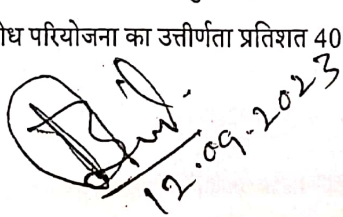 ोध परियोजना का उत्तीर्णता प्रतिशत 40
12.09.2023